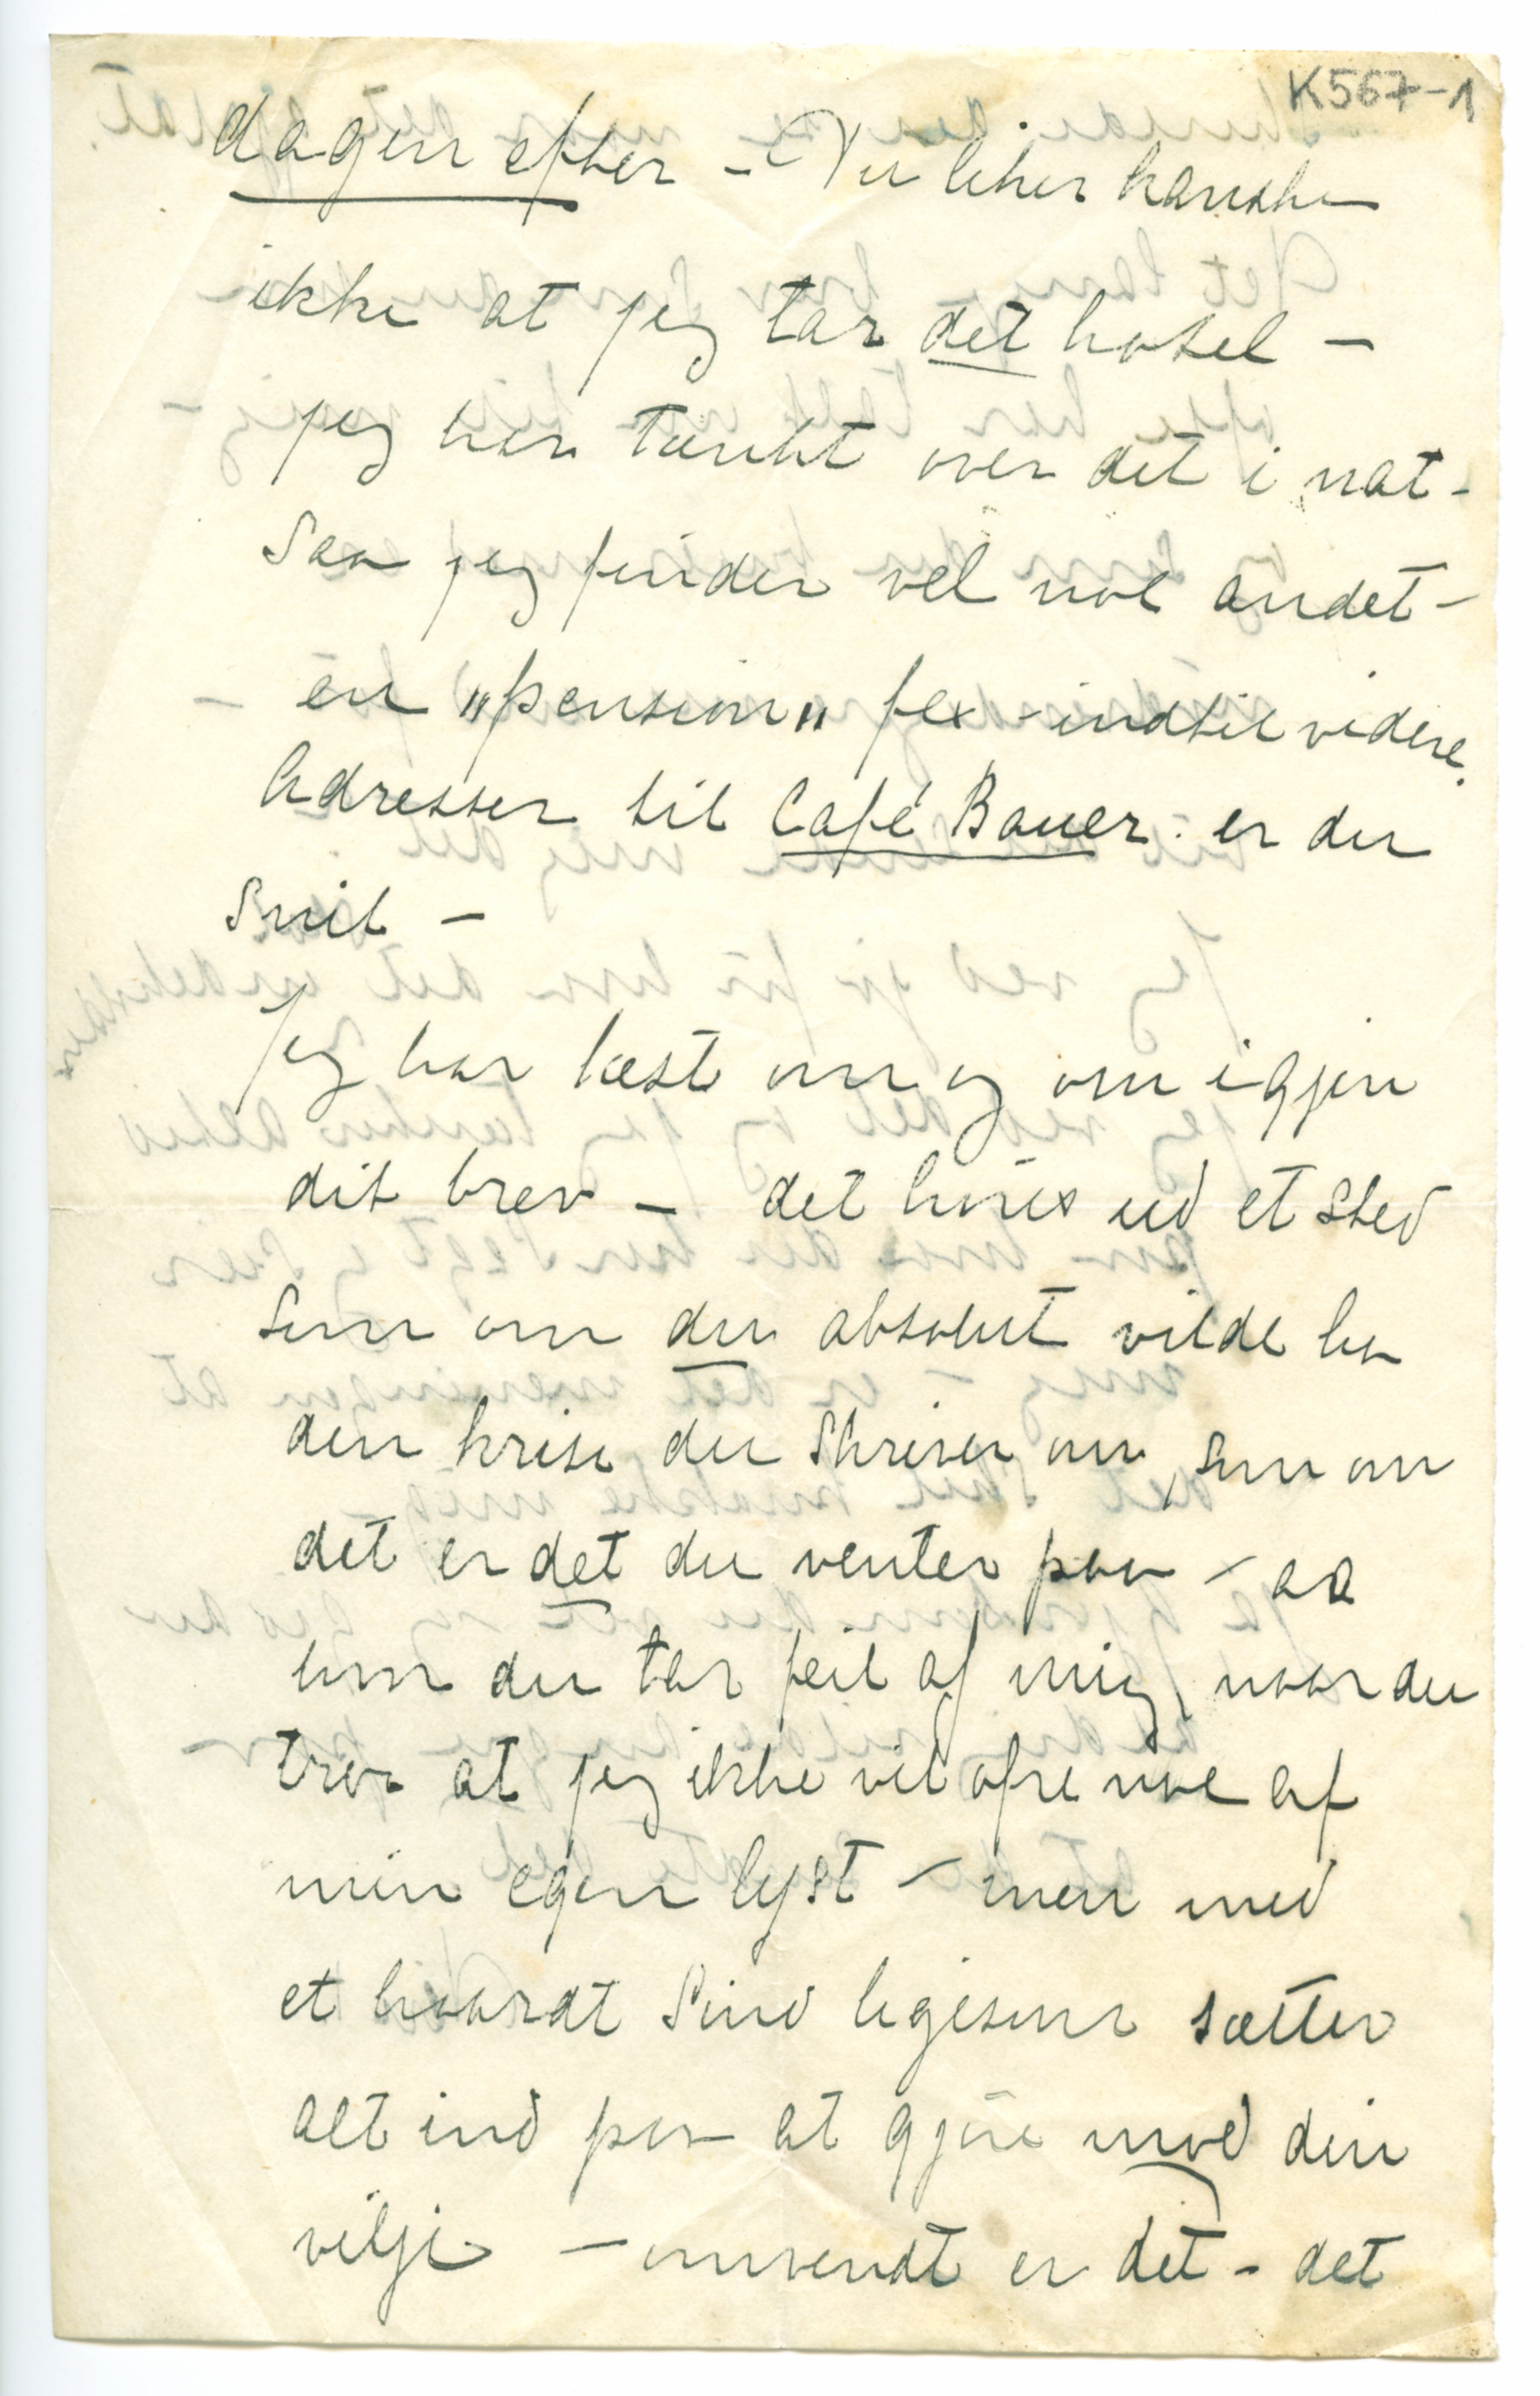 K567-1
dagen efter - Du liker kanske
ikke at jeg tar det hotel -
jeg har tænkt over det i nat -
Saa jeg finder vel noe andet -
en "pension" fex - indtil videre.
Adresser til Café Bauer. er du
snil -
Jeg har læst om og om igjen
dit brev - det høres ud et sted
som om du absolut vilde ha
den krise du skriver om, som om
det er det du venter paa - aa
hvor du tar feil af mig, naar du
tror at jeg ikke vil ofre noe af
min egen lyst - men med
et haardt Sind ligesom sætter
alt ind paa at gjøre mod din
vilje - omvendt er det - det